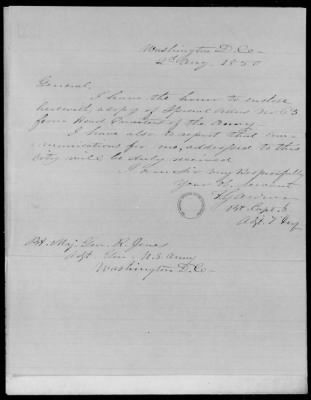 Washington D. Co
2d Aug. 1850
General,
I have the honor to enclose
herewith, a copy of Special Orders No 63
from Head Quarters of the Army.
I have also to report that com-
munications for me, addressed to this
City will be duly received
I am Sir Very Respectfully
Your Ob. Servant
Bt. Capt.
Bt. Maj. Gen. R. Jones
Adjt. Gen. U.S. Army
Washington D. Co